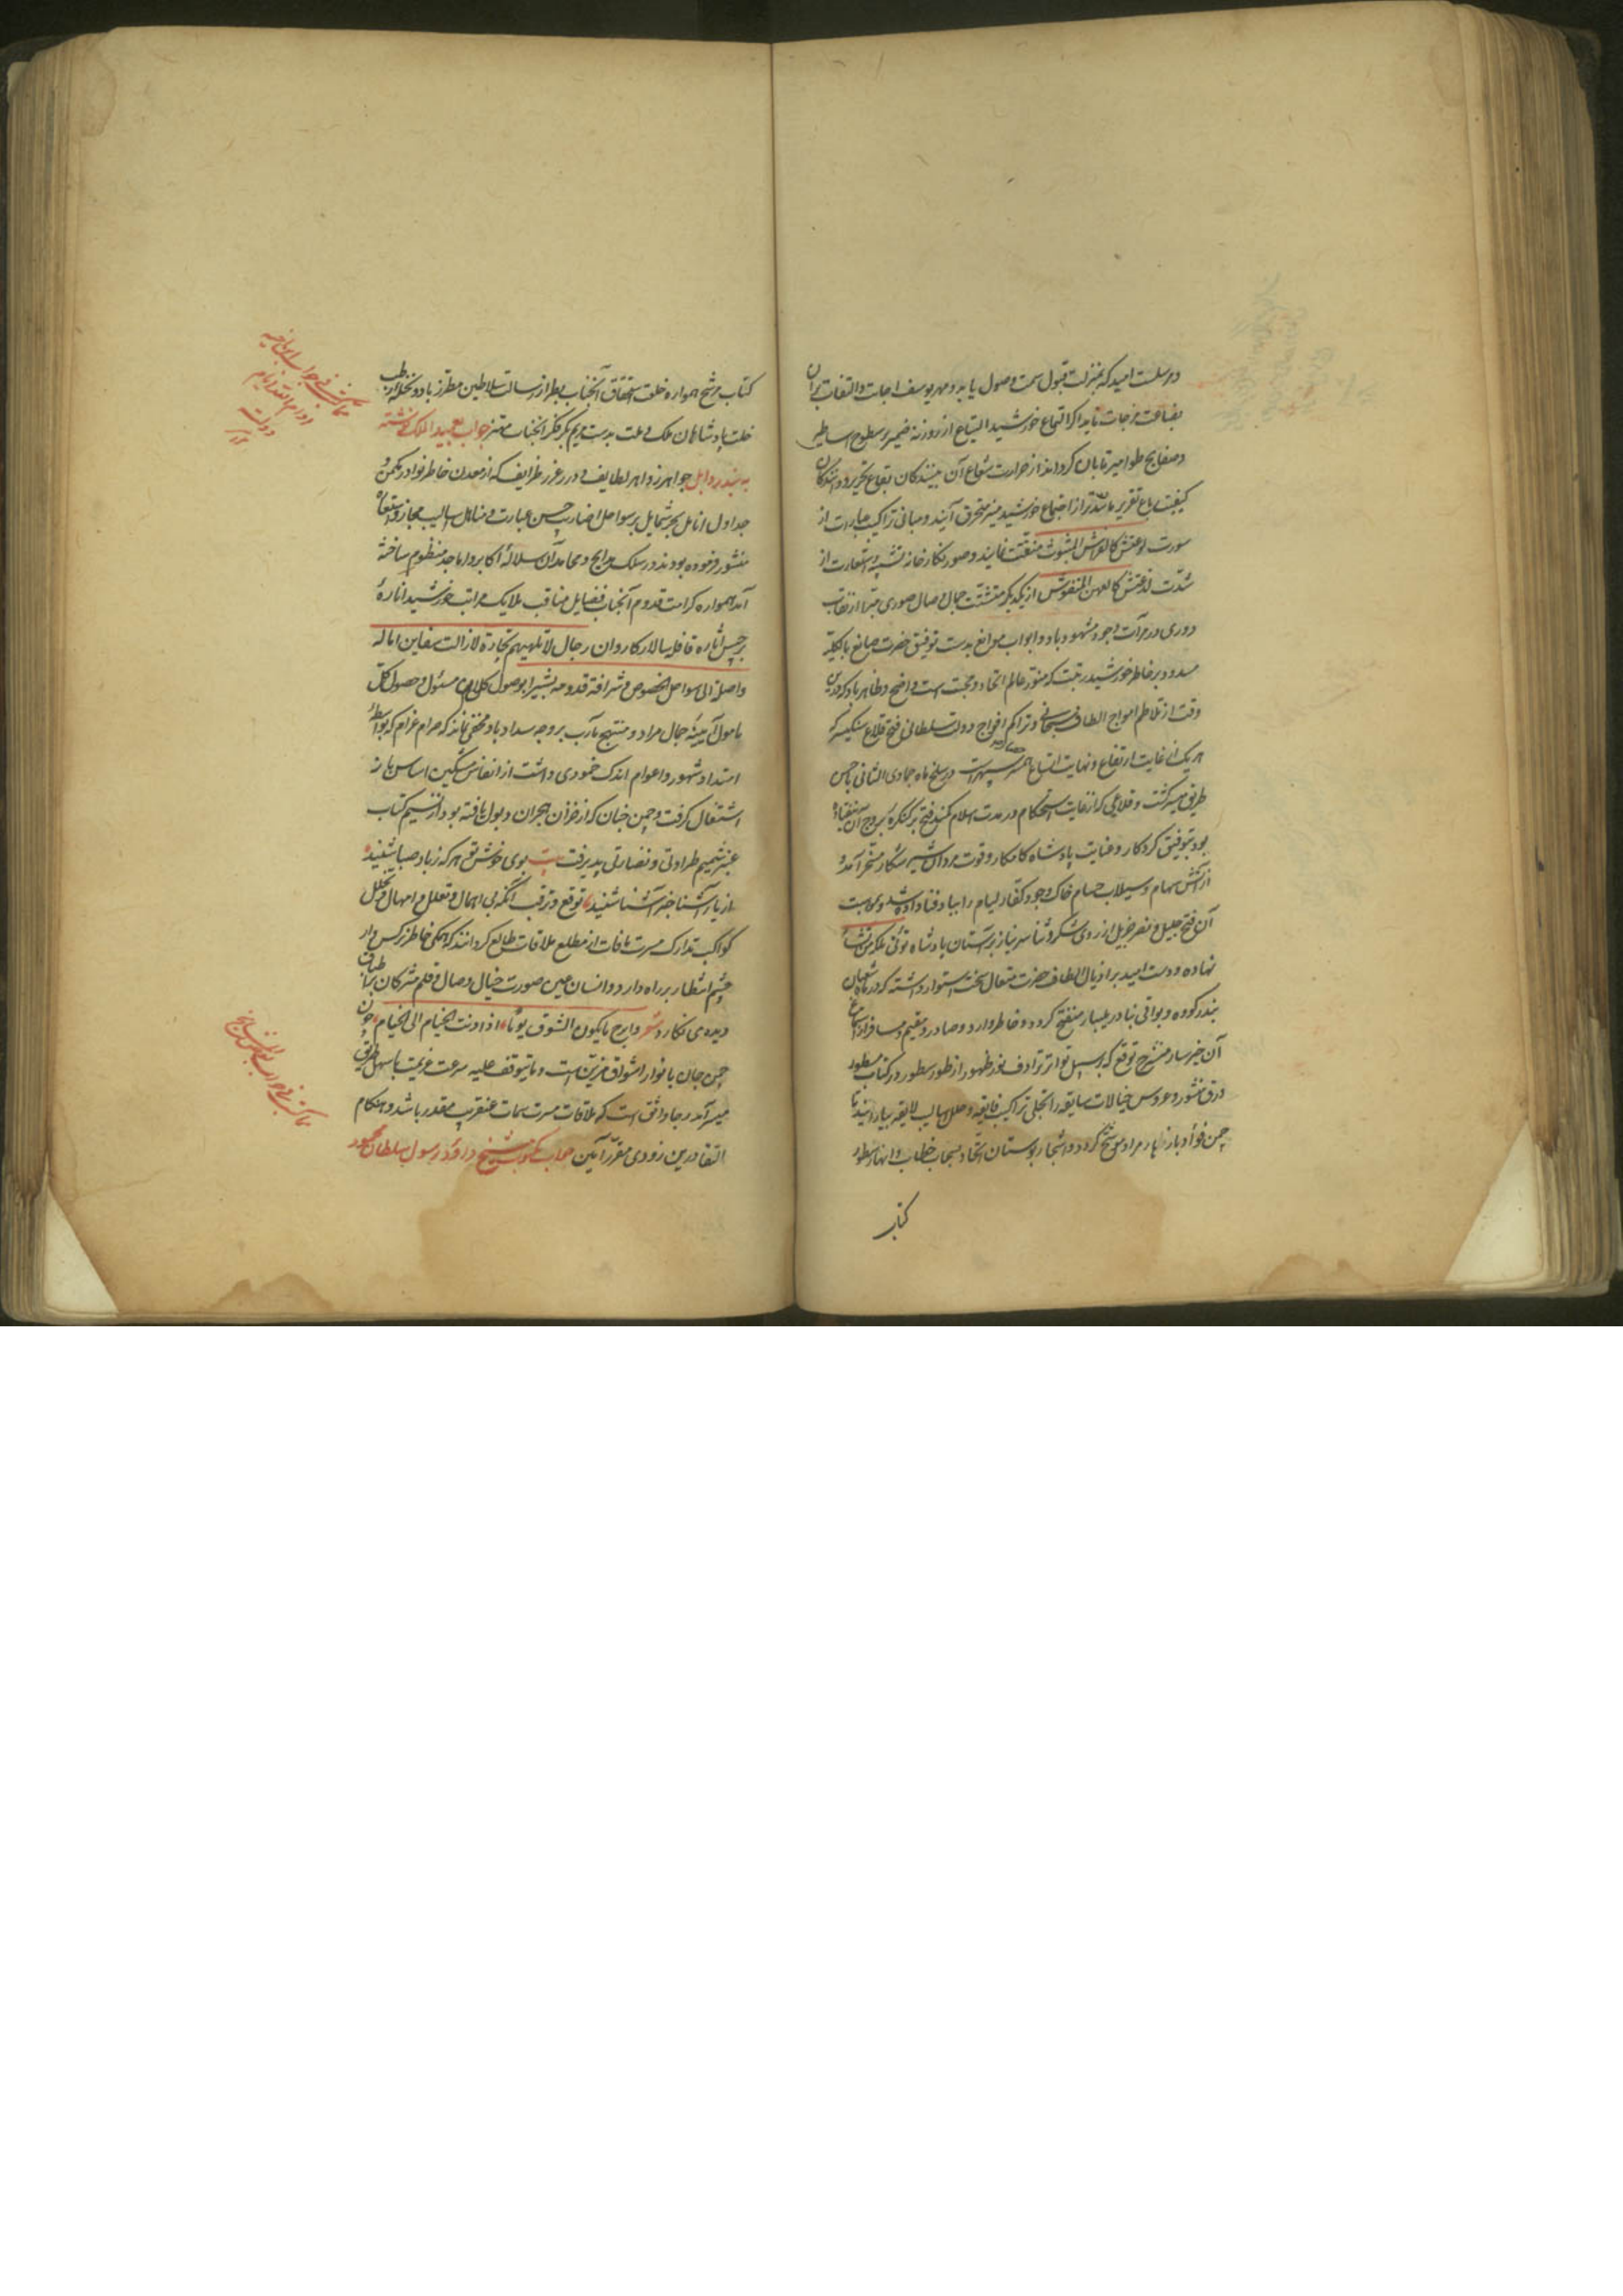 وسلت امید که بمنزلت قبول سمت وصول یابد و مهر یوسف اجابت و التفات بران
بضاعت مزجات تابد اگر التماع خورشید التیاع از روزنه ضمیر بر سطوح اساطیر
و صفایح طوامیر تابان گرداند از حرارت شعاع آن بینندگان بقاع تحریر و دانندگان
کیفیت رباع تقریر مانند از اجتماع خورشید منیر محترق آیند و مبانی تراکیب عبارات از
سورت لوعتش کالفراش المبثوث متفتت نمایند و صور نگارخانه تشبیه و استعارت از
شدت لذعتش کالعهن المنفوش از یکدیگر متشتت جمال وصال صوری مبرا از نقاب
دوری در مرآت وجود مشهود باد و ابواب موانع بدست توفیق حضرت صانع بالکلیه
مسدود بر خاطر خورشید رتبت که منور عالم اتحاد و محبت است واضح و ظاهر باد که درین
وقت از تلاطم امواج الطاف سبحانی و تراکم افواج دولت سلطانی فتح قلاع سنگیسر که
هر یک از غایت ارتفاع و نهایت اتساع سپهرست در سلخ ماه جمادی الثانی باحسن
طریق میسر گشت و قلاعی که از غایت استحکام در مدت اسلام کمند فتح بر کنگره بروج آن نیفتاده
بود بتوفیق کردگار و عنایت پادشاه کامکار و قوت مردان شیر شکار مسخر آمد و
از آتش سهام و سیلاب حسام خاک وجود کفار لیام را بباد فنا داده شد و بموهبت
آن فتح جلیل و نصر جزیل از روی شکر و ثنا سر نیاز بر آستان پادشاه تؤتی ملکه من تشاء
نهاده و دست امید بر اذیال الطاف حضرت متعال سخت استوار داشته که در ماه شعبان
بندر گووه و بواقی بنادر ملیبار منفتح گردد و خاطر وارد و صادر و مقیم و مسافر از استماع
آن خبر سار منشرح توقع که بر سبیل تواتر ترادف نور ظهور از طور سطور در کتاب مسطور
و رق منشور و عروس خیالات سابقه را بحلی تراکیب فایقه و حلل اسالیب لایقه بیارایند تا
چمن فؤاد باز هار مراد موشح گردد و اشجار بوستان اتحاد بسحاب خطاب و انهار سطور
کتاب
کتاب مرشح همواره خلعت استحقاق آنجناب بطراز رسالت سلاطین مطرز باد و نخل رطب
خلت پادشاهان ملک و ملت بدست مریم بکر فکر آنجناب مهتز جواب عمید الملک نوشته
به بندر دابل جواهر زواهر لطایف و درر غرر ظرایف که از معدن خاطر نوادر مکمن و
جداول انامل بحر شمایل بر سواحل مضارب حسن عبارت و مناهل اسالیب مجاز و استعاره
منثور فرموده بودند در سلک مدایح و محامد آن سلاله اکابر و اماجد منظوم ساخته
آمد همواره کرامت قدوم آنجناب فضایل مناقب ملایک مراتب خورشید اناره
برجیس اشاره قافله سالار کاروان رجال لا تلهیهم تجارة لا زالت سفاین اماله
واصلة الی سواحل الخصوص و شرافة قدومه بشیرا بوصول کل مسئول و حصول کل
مامول آیینه جمال مراد و منتج مآرب بر وجه سداد باد مخفی نماند که ضرام غرام که بواسطه
امتداد شهور و اعوام اندک خمودی داشت از انفاس مشکین اساس باز
اشتعال گرفت و چمن جنان که از خزان هجران ذبول یافته بود از نسیم کتاب
عنبر شمیم طراوتی و نضارتی پذیرفت بیت بوی خوش تو هر که ز باد صبا شنید
از یار آشنا خبر آشنا شنید توقع و ترقب آنکه بی اهمال و تعلل و امهال و تخلل
کواکب تدارک مسرت مافات از مطلع ملاقات طالع گردانند که همگی خاطر نرگس وار
چشم انتظار بر راه دارد و انسان عین صورت خیال وصال و قلم مژگان بر اطباق
دیده می نگارد شعر و ابرح ما یکون الشوق یوما اذا دنت الخیام الی الخیام و چون
چمن جان بانوار اشواق مزین است و مایتوقف علیه سرعت عزیمت باسهل طریق
میسر آمد رجا واثق است که ملاقات مسرت سمات عنقریب مقدر باشد و هنگام
التقا درین زودی مقرر آمین جواب مکتوب شیخ داود رسول سلطان محمود